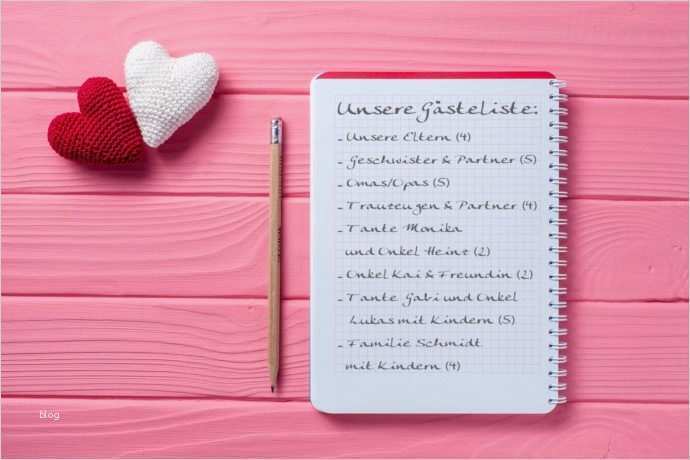 Unsere Gästeliste:
- Unsere Eltern (4)
- Geschwister & Partner (5)
- Omas/Opas (5)
- Trauzeugen & Partner (4)
- Tante Monika
und Onkel Heinz (2)
- Onkel Kai & Freundin (2)
- Tante Gabi und Onkel
Lukas mit Kindern (5)
- Familie Schmidt
mit Kindern (4)
blog